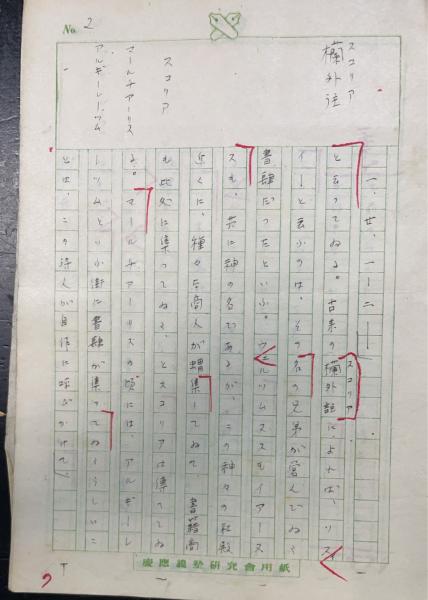 No. 2
スコリア
欄外注
スコリア
マールチアーリス
アルギーレーツム
一、廿、一ー二ー
と云つてゐる。古来の欄外註によれば、ソス
スコリア
イーと云ふのは、その名の兄弟が営んでゐた
書肆だつたといふ。ウェルツムヌスもイアーヌ
スも、共に神の名であるが、この神々の社殿
近くに、種々な商人が蝟集してゐて、書籍商
も此処に集つてゐた、とスコリアは集つてゐ
る。マールチアーリスの頃には、アルギーレ
ーツムといふ街に書肆が集つてゐたらしいこ
とは、この詩人が自作に呼びかけて、
慶應義塾研究會用紙